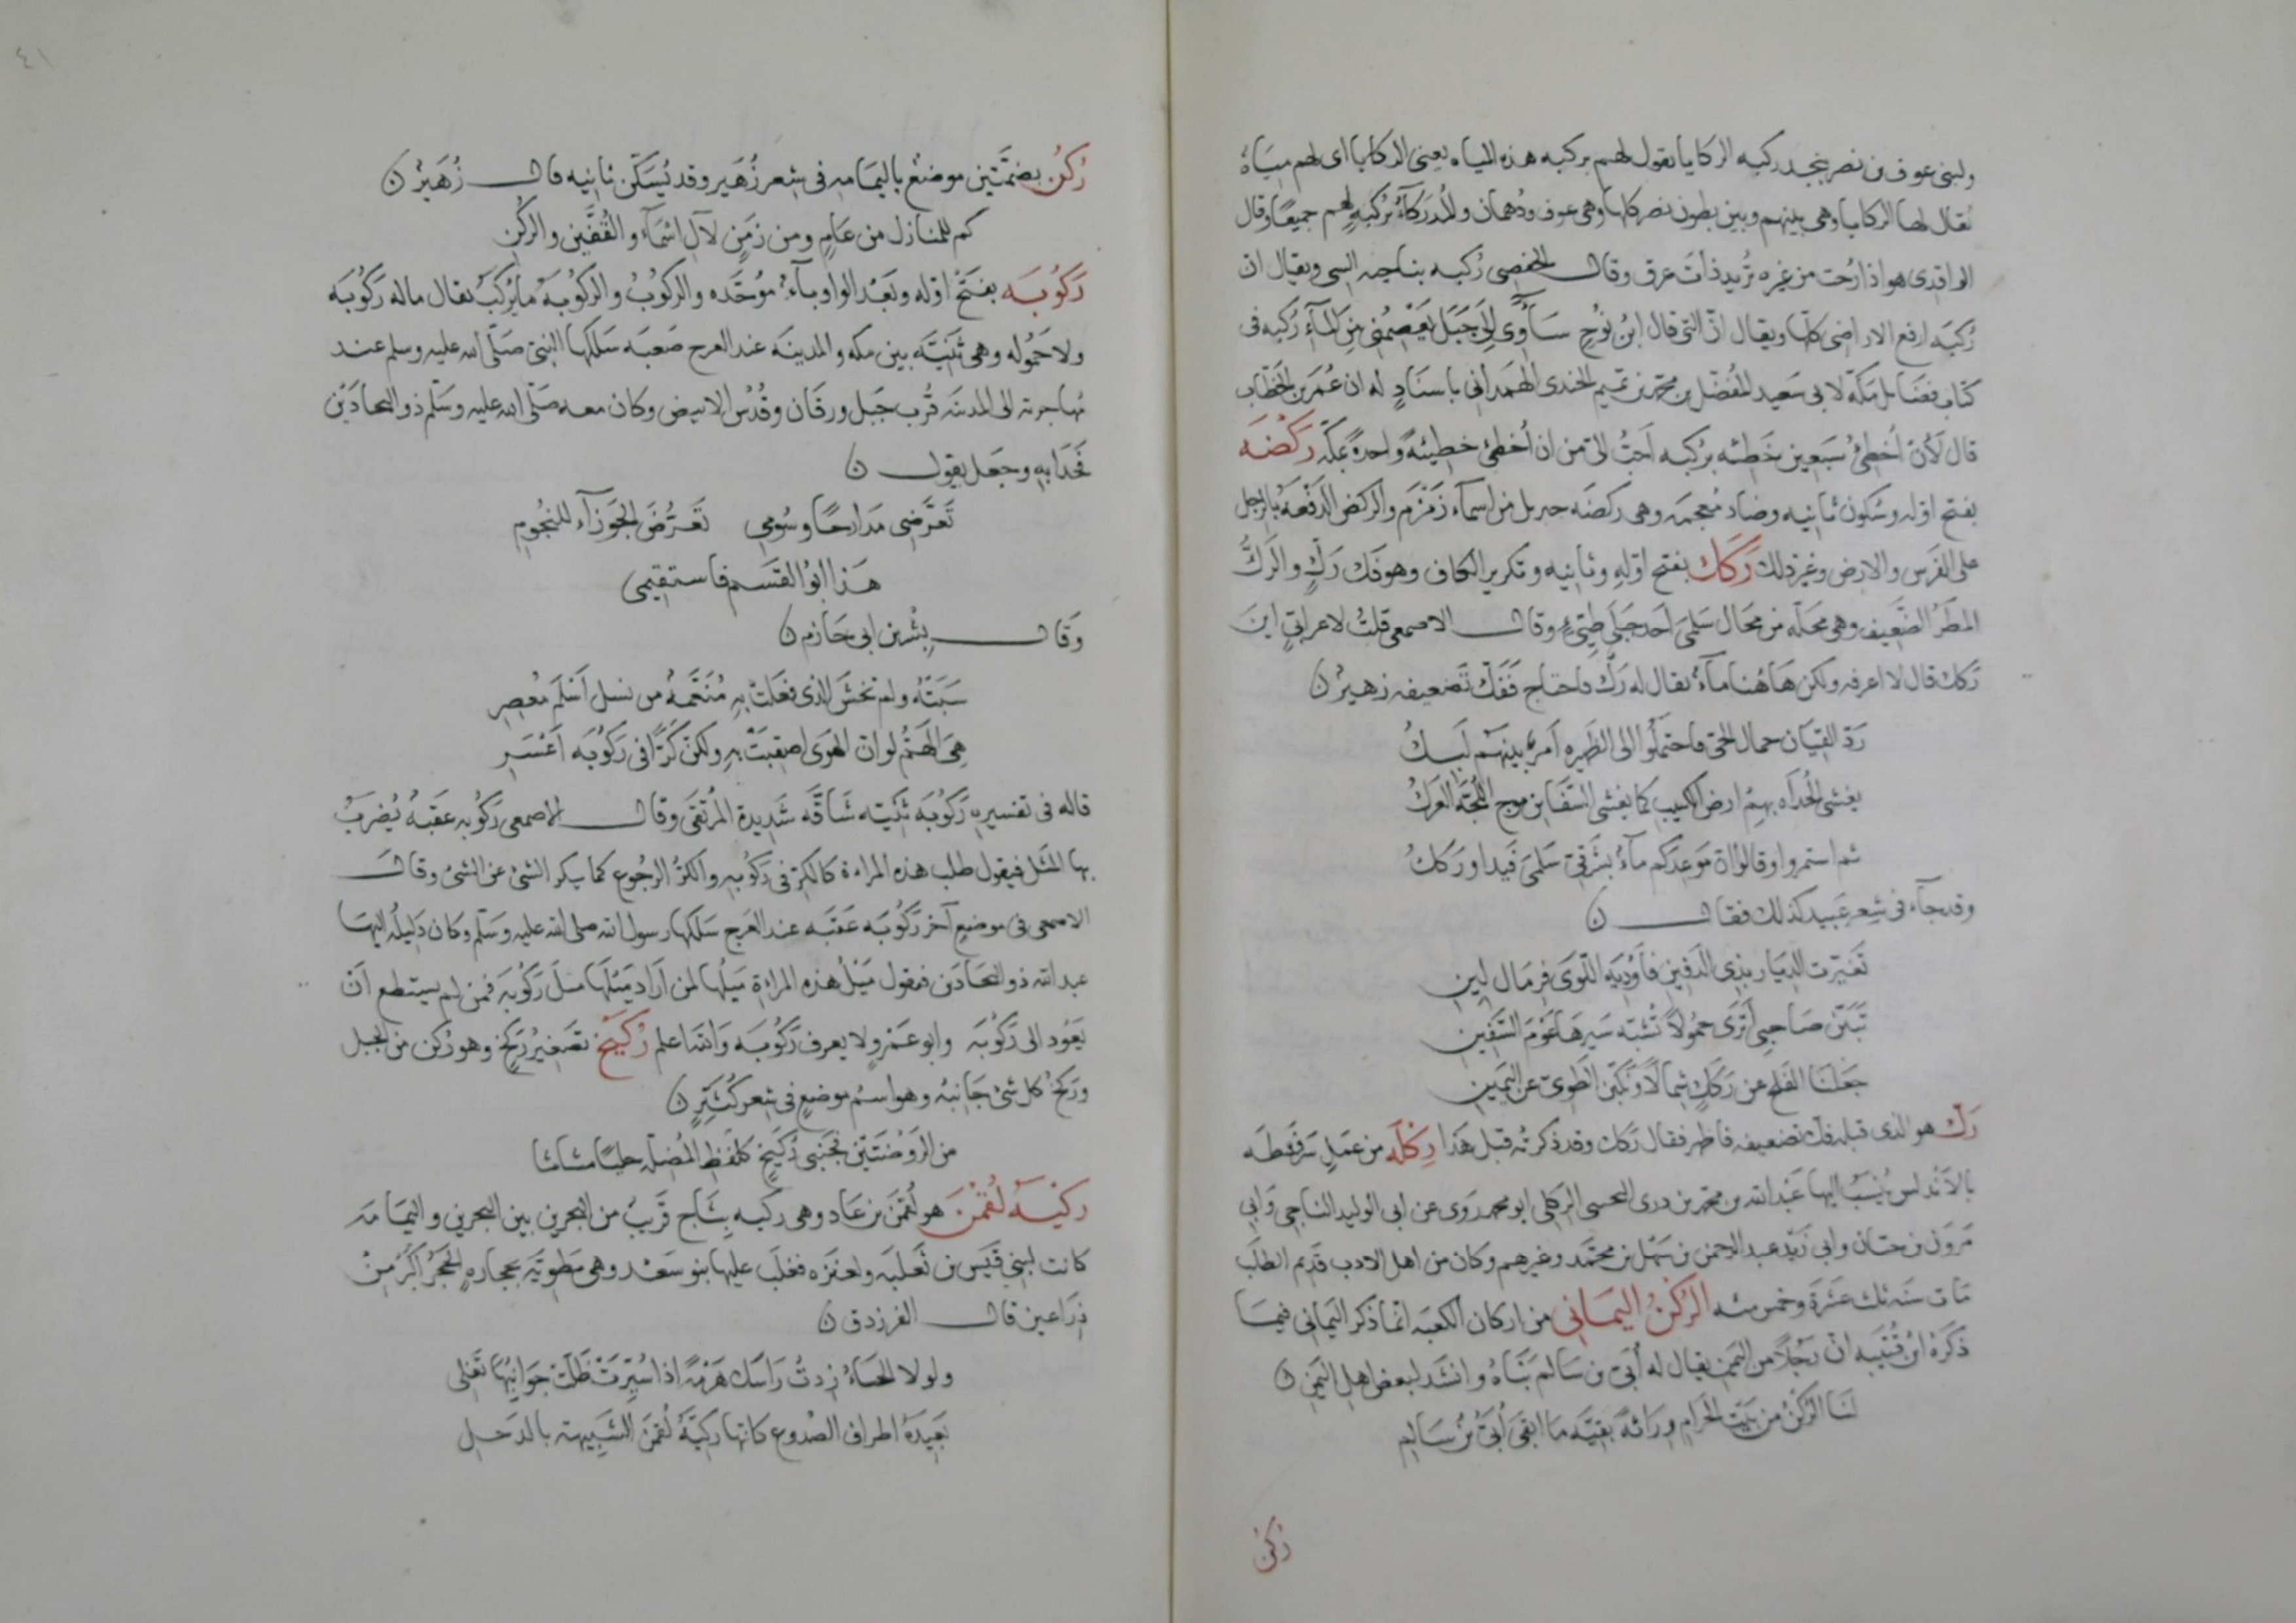 ولبنى عوف بن نصر بنجد ركبه الركايا يقول لهم بركبه هذه المياه يعنى الركايا اى لهم مياه
يقال لها الركايا وهى بينهم وبين بطون نصر كلها وهى عوف ودهمان والمدركاء بركبه لهم جميعا وقال
الواقدى هو اذا رحت من غمره تريد ذات عرق وقال الحفصى ركبه بناحيه السى ويقال ان
ركبه ارفع الاراضى كلها ويقال انّ التى قال ابن نوح سآوى الى جبل يعصمنى من المآء ركبه فى
كتاب فضائل مكّه لابى سعيد المفضّل بن محمّد بن تميم الجندى الهمدانى باسناد له ان عمر بن الخطاب
قال لان اخطئ سبعين خطيئه بركبه احبّ الىّ من ان اخطئ خطيئة واحدة بمكّه ركضه
بفتح اوله وسكون ثانيه وضاد معجمه وهى ركضه جبريل من اسمآء زمزم والركض الدفعه بالرجل
على الفرس والارض وغير ذلك ركك بفتح اوله وثانيه وتكرير الكاف وهو فك ركّ والركّ
المطر الضّعيف وهى محلّه من محال سلمى احد جبلى طيّىء وقال الاصمعى قلت لاعرابىّ اين
ركك قال لا اعرفه ولكن هاهنا مآء يقال له ركّ فاحتاج ففكّ تضعيفه زهير ن
ردّ القيان جمال الحىّ فاحتملوا الى الظهيره امر بينهم لبك
يغشى الحداه بهم ارض الكثيب كما يغشى السّفاين موج اللّجّه العرك
ثم استمروا وقالوا انّ موعدكم مآء بشرقىّ سلمى فيد او ركك
وقد جآء فى شعر عبيد كذلك فقال ن
تغيّرت الديار بذى الدفين فاوديه اللّوى فرمال لين
تبيّن صاحبى اترى حمولا تشبّه سيرها عوم السّفين
جعلنا الفلج من ركك شمالا ونكّبن الطوىّ عن اليمين
ركّ هو الذى قبله فك تضعيفه فاظهر فقال ركك وقد ذكرته قبل هذا ركله من عمل سرقسطه
بالاندلس ينسب اليها عبد الله بن محمّد بن درى التجيبى الركلى ابو محمد روى عن ابى الوليد الباجى وابى
مروان بن حيّان وابى زيد عبد الرحمن بن سهل بن محمّد وغيرهم وكان من اهل الادب قديم الطلب
مات سنه ثلث عشرة وخمس مئه الركن اليمانى من اركان الكعبه انما ذكر اليمانى فيما
ذكره ابن قتيبه انّ رجلا من اليمن يقال له أبىّ بن سالم بناه وانشد لبعض اهل اليمن ن
لنا الركن من بيت الحرام وراثة بقيّه ما ابقى أبىّ بن سالم
ركن
٤١
ركن بضمّتين موضع باليمامه فى شعر زهير وقد يسكّن ثانيه قال زهير ن
كم للمنازل من عام ومن زمن لآل اسمآء والقفّين والركن
ركوبه بفتح اوّله وبعد الواو بآء موحّده والركوب والركوبه ما يركب يقال ماله ركوبه
ولا حموله وهى ثنيّه بين مكه والمدينه عند العرج صعبه سلكها النبى صلّى الله عليه وسلم عند
مهاجرته الى المدينه قرب جبل ورقان وقدس الابيض وكان معه صلّى الله عليه وسلّم ذو البجادين
فحدا به وجعل يقول ن
تعرّضى مدارجا وسومى تعرّض الجوزآء للنجوم
هذا ابو القسم فاستقيمى
وقال بشر بن ابى حازم ن
سبته ولم تخش الذى فعلت به منعّمة من نسل اسلم معصر
هى الهمّ لو ان الهوى اصقبت به ولكنّ كرّا فى ركوبه اعسر
قاله فى تفسيره ركوبه ثنيّه شاقّه شديدة المرتقى وقال الاصمعى ركوبه عقبة يضرب
بها المثل فيقول طلب هذه المراءة كالكرّ فى ركوبه والكرّ الرجوع كما يكر الشئ عن الشئ وقال
الاصمعى فى موضع آخر ركوبه عقبه عند العرج سلكها رسول الله صلى الله عليه وسلّم وكان دليله اليها
عبد الله ذو البجادين فيقول ميل هذه المراءة ميلها لمن اراد مثل ركوبه فمن لم يستطع ان
يعود الى ركوبه وابو عمرو لا يعرف ركوبه والله اعلم ركيح تصغير ركح وهو ركن من الجبل
وركح كل شئ جانبه وهو اسم موضع فى شعر كثيّر ن
من الروضتين فجنبى ركيح كلفظ المضلّه حليا مثاثا
ركيّه لقمن هو لقمن بن عاد وهى ركيه بثاج قريب من البحرين بين البحرين واليمامه
كانت لبنى قيس بن ثعلبه ولعنزه فغلب عليها بنو سعد وهى مطويّه بحجاره الحجر اكبر من
ذراعين قال الفرزدق ن
ولولا الحياء زدت راسك هزمة اذا سبرت ظلّت جوانبها تغلى
بعيدة اطراف الصدوع كانها ركيّة لقمن الشبيهة بالدحل